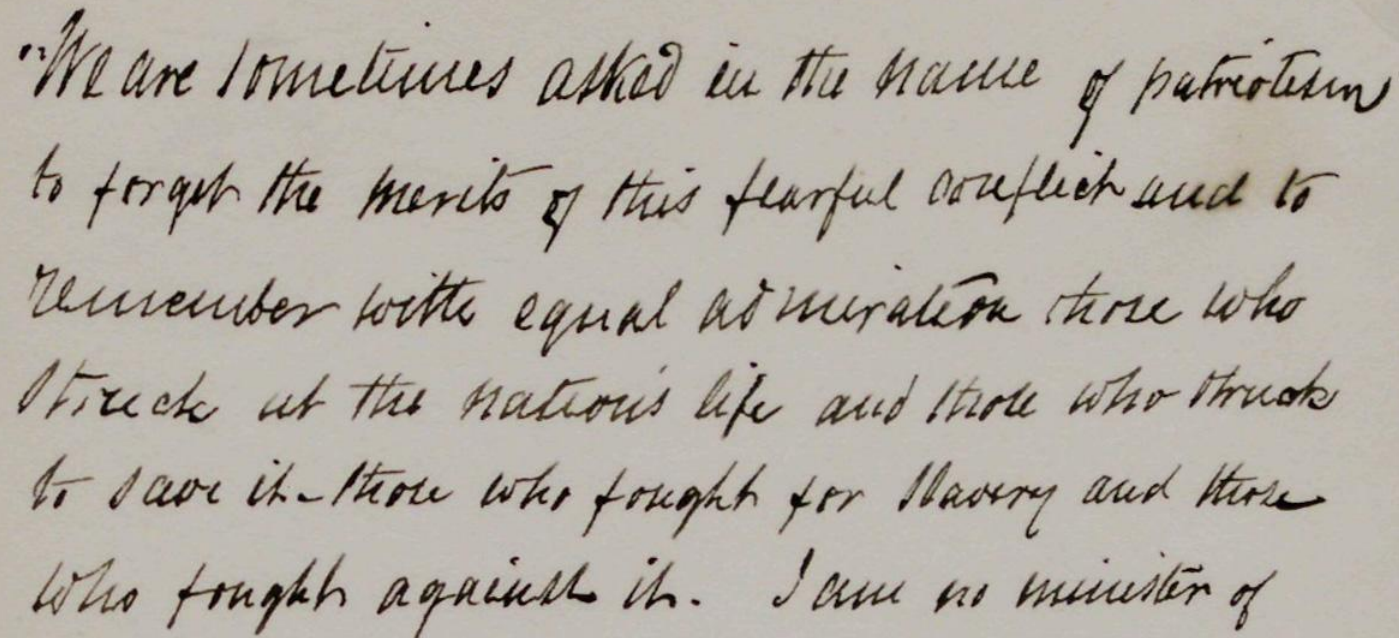 "We are sometimes asked in the name of patriotism
to forget the merits of this fearful conflict and to
remember with equal admiration those who
struck at the nation's life and those who struck
to save it - those who fought for slavery and those
who fought against it. I am no minister of